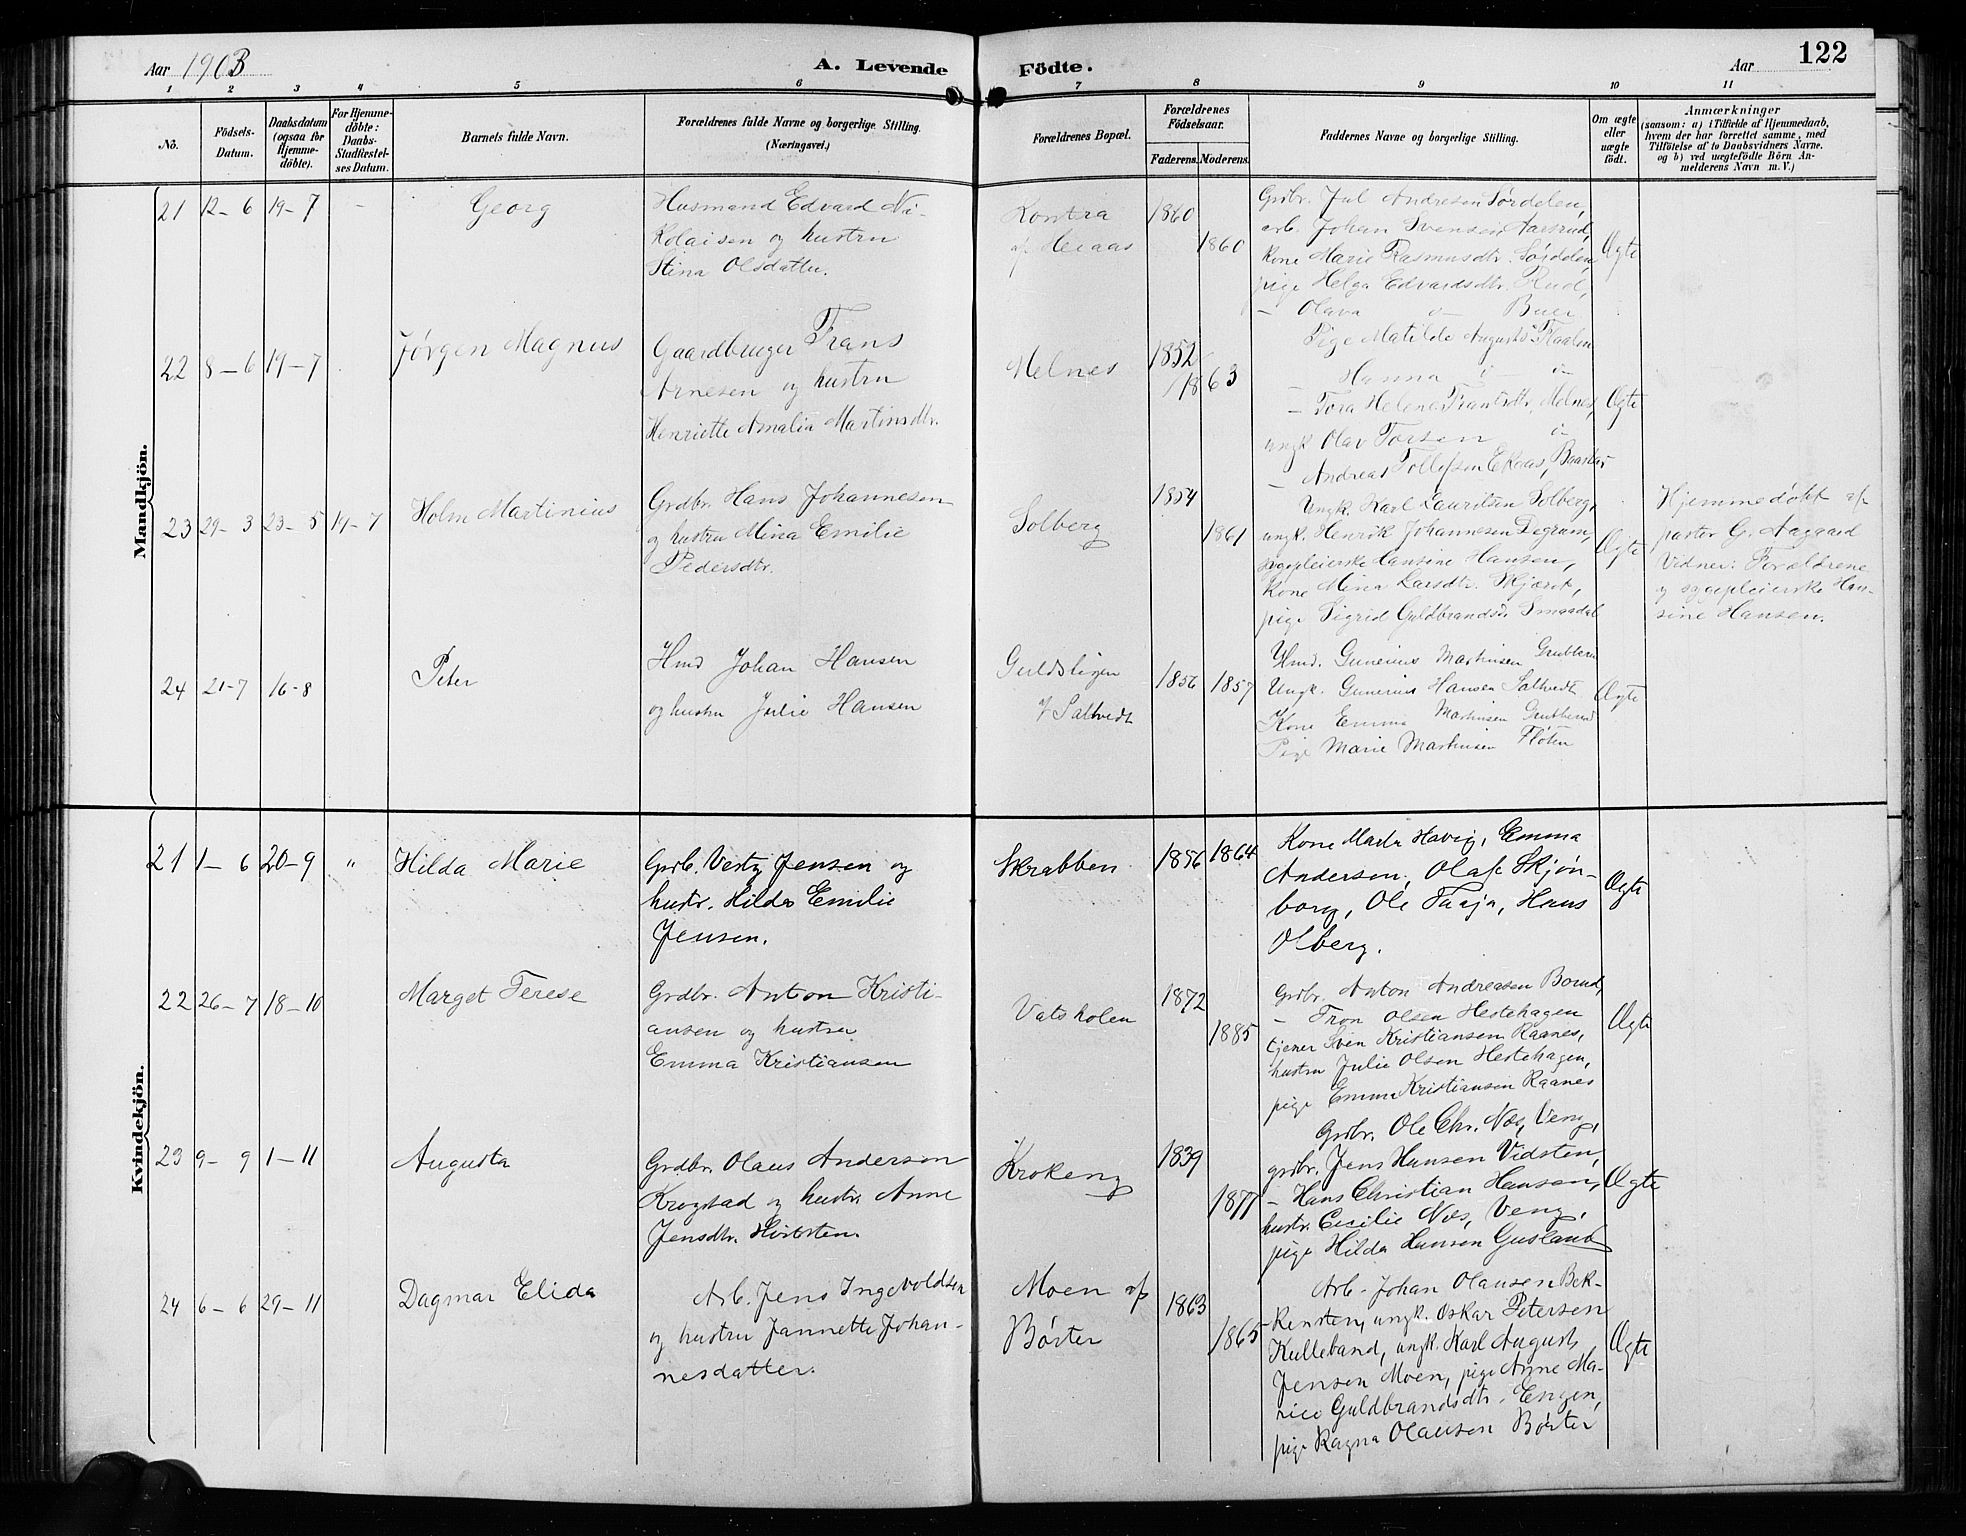 Aar 1903
A. Levende Födte.
Aar
122
1 2 3 4 5 6 7 8 9 10 11
No.
Födsels-
Datum.
Daabsdatum
(ogsaa for
Hjemme-
döbte).
For Hjemme-
döbte:
Daabs-
Stadfæstel-
ses Datum.
Barnets fulde Navn.
Forældrenes fulde Navne og borgerlige Stilling.
(Næringsvei.)
Forældrenes Bopæl.
Forældrenes
Födselsaar.
Faderens. Moderens.
Faddernes Navne og borgerlige Stilling.
Om ægte
eller
uægte
födt.
Anmærkninger
(saasom: a) i Tilfælde af Hjemmedaab,
hvem der har forrettet samme, med
Tilföielse af to Daabsvidners Navne.
og b) ved uegtefödte Börn An-
melderens Navn m.V.)
Mandkjön.
21 12-6 19-7 -
Georg
Husmand Edvard Ni-
kolaisen og hustru
Stina Olsdatter.
Kontra
af Heiaas
1860
1860
Grdbr. Jul Andresen Sørdelen,
arb. Johan Svensen Aarsrud,
kone Marie Rasmusdtr. Sørdelen,
pige Helga Edvardsdtr. Rud,
- Olava " Buer
Ægte
22 8-6 19-7
Jørgen Magnus
Gaardbruger Frans
Arnesen og hustru
Henriette Amalia Martinsdtr.
Melnes
1852
1863
Pige Matilde Augustsd. Kaalen
- Hanna " "
- Tora Helene Frantsdtr. Melnes,
ungk. Olav Torsen "
- Andreas Tollefsen Ekaas, Baastad
Ægte
23 29-3 23-5 19-7
Holm Martinius
Grdbr. Hans Johannesen
og hustru Mina Emilie
Pedersdtr.
Solberg
1854
1861
Ungk. Karl Lauritsen Solberg,
ungk. Henrik Johannesen Degrum,
sygepleierske Hansine Hansen,
Kone Mina Larsdtr. Skjæret,
pige Sigrid Guldbrandsd. Smaadal
Ægte
Hjemmedøbt af
pastor G. Aagaard
Vidner: Forældrene
og sygepleierske Han-
sine Hansen.
24 21-7 16-8
Peter
Hmd Johan Hansen
og hustru Julie Hansen
Guldsligen
af Saltvedt
1856 1857
Hmd. Gunerius Martinsen
Ungk. Gunerius Hansen Saltvedt
Kone Emma Martinsen
Pige Marie Martinsen Fløten
Ægte
Kvindekjön.
21 1-6 20-9 "
Hilda Marie
Grdb. Jensen og
hustr. Hilda Emilie
Jensen.
Skrabben
1856 1864
Kone Marta Havig, Emma
Andersen, Olaf Skjøn-
borg, Ole Taaje, Hans
Olberg.
Ægte
22 26-7 18-10
Marget Terese
Grdbr. Anton Kristi-
ansen og hustru
Emma Kristiansen
Vatsholen
1872
1885
Grdbr. Anton Andreasen Borud,
- Tron Olsen Hestehagen
tjener Sven Kristiansen Raanes,
hustru Julie Olsen Hestehagen,
pige Emma Kristiansen Raanes
Ægte
23 9-9 1-11
Augusta
Grdbr. Olaus Anderson
Krogstad og hustr. Anne
Jensdtr.
Krokeng
1839
1877
Grdbr. Ole Chr. Næs, Veng,
grdbr. Jens Hansen Vidsten,
- Hans Christian Hansen,
hustr. Cecilie Næs, Veng,
pige Hilda Hansen Guslund
Ægte
24 6-6 29-11
Dagmar Elida
Arb. Jens Ingevoldsen
og hustru Jannette Johan-
nesdatter.
Moen af
Børter
1863
1865
Arb. Johan Olausen Bek-
kensten, ungk. Oskar Petersen
Kulleband, ungk. Karl August
Jensen Moen, pige Anne Ma-
rie Guldbrandsdtr. Engen,
pige Ragna Olausen Børter
Ægte